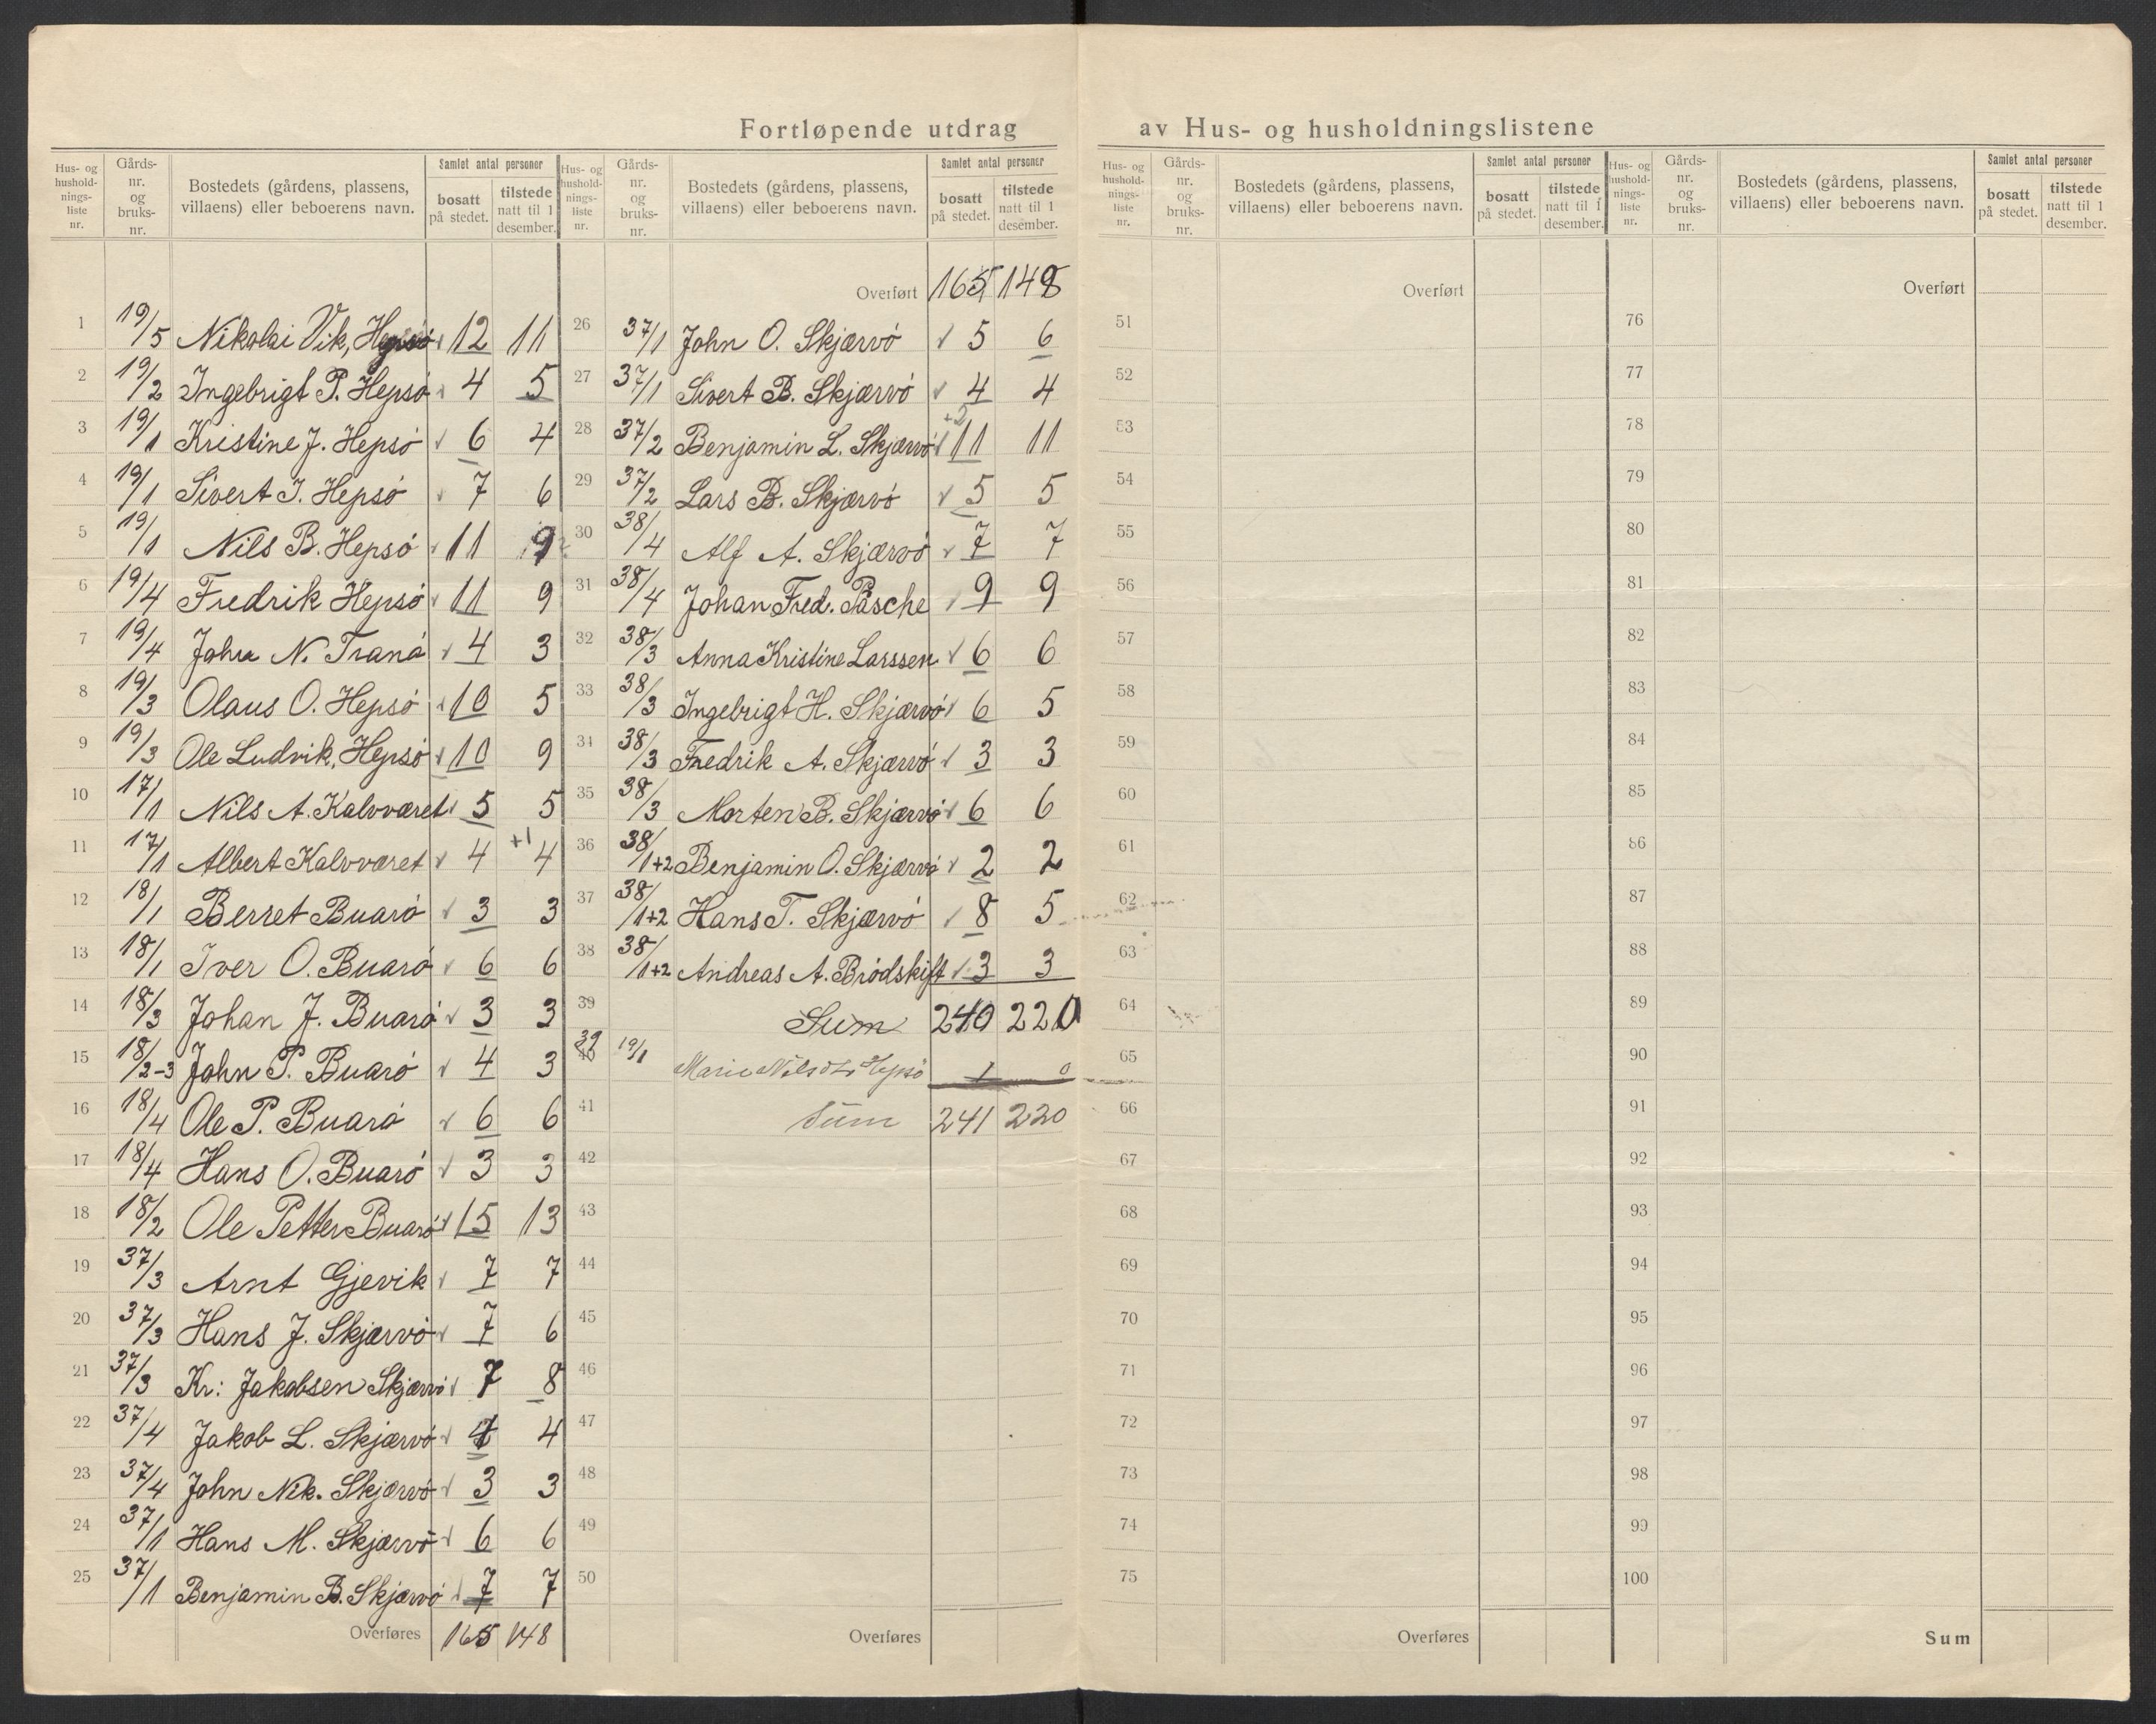 Fortløpende utdrag av Hus- og husholdningslistene
Hus- og hushold-nings-liste nr. Gårds-nr. og bruks-nr. Bostedets (gårdens, plassens, villaens) eller beboerens navn. Samlet antal personer bosatt på stedet. tilstede natt til 1 desember.
1 19/5 Nikolai Vik, Hepsø 12 11
2 19/2 Ingebrigt P. Hepsø 4 5
3 19/1 Kristine J. Hepsø 6 4
4 19/1 Sivert I. Hepsø 7 6
5 19/1 Nils B. Hepsø 11 9
6 19/4 Fredrik Hepsø 11 9
7 19/4 John N. Tranå 4 3
8 19/3 Olaus O. Hepsø 10 5
9 19/3 Ole Ludvik, Hepsø 10 9
10 17/1 Nils A. Kalvværet 5 5
11 17/1 Albert Kalvværet 4 +1 4
12 18/1 Berret Buarø 3 3
13 18/1 Iver O. Buarø 6 6
14 18/3 Johan J. Buarø 3 3
15 18/2-3 John P. Buarø 4 3
16 18/4 Ole P. Buarø 6 6
17 18/4 Hans O. Buarø 3 3
18 18/2 Ole Petter Buarø 15 13
19 37/3 Arnt Gjevik 7 7
20 37/3 Hans J. Skjærvø 7 6
21 37/3 Kr: Jakobsen Skjærvø 7 8
22 37/4 Jakob L. Skjærvø 4
23 37/4 John Nik. Skjærvø 3 3
24 37/1 Hans M. Skjærvø 6 6
25 37/1 Benjamin B. Skjærvø 7 7
Overføres 165 148
Hus- og hushold-nings-liste nr. Gårds-nr. og bruks-nr. Bostedets (gårdens, plassens, villaens) eller beboerens navn. Samlet antal personer bosatt på stedet. tilstede natt til 1 desember.
Overført 165 148
26 37/1 John O. Skjærvø 5 6
27 37/1 Sivert B. Skjærvø 4 4
28 37/2 Benjamin L. Skjærvø +2 11 11
29 37/2 Lars B. Skjærvø 5 5
30 38/4 Alf A. Skjærvø 7 7
31 38/4 Johan Fred. Påsche 9 9
32 38/3 Anna Kristine Larssen 6 6
33 38/3 Ingebrigt H. Skjærvø 6 5
34 38/3 Fredrik A. Skjærvø 3 3
35 38/3 Morten B. Skjærvø 6 6
36 38/1+2 Benjamin O. Skjærvø 2 2
37 38/1+2 Hans T. Skjærvø 8 5
38 38/1+2 Andreas A. Brødskift 3 3
39 Sum 240 220
40 39 19/1 Marie Nilsdtr Hepsø 1 0
41 Sum 241 220
42
43
44
45
46
47
48
49
50
Overføres
Hus- og hushold-nings-liste nr. Gårds-nr. og bruks-nr. Bostedets (gårdens, plassens, villaens) eller beboerens navn. Samlet antal personer bosatt på stedet. tilstede natt til 1 desember.
Overført
51
52
53
54
55
56
57
58
59
60
61
62
63
64
65
66
67
68
69
70
71
72
73
74
75
Overføres
Hus- og hushold-nings-liste nr. Gårds-nr. og bruks-nr. Bostedets (gårdens, plassens, villaens) eller beboerens navn. Samlet antal personer bosatt på stedet. tilstede natt til 1 desember.
Overført
76
77
78
79
80
81
82
83
84
85
86
87
88
89
90
91
92
93
94
95
96
97
98
99
100
Sum